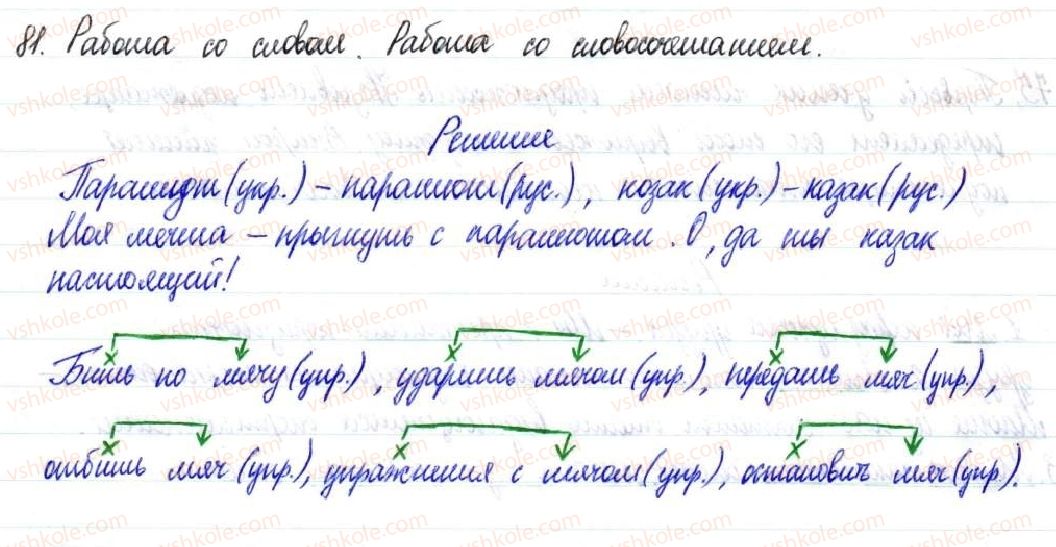 81. Работа со словом. Работа со словосочетанием.
Решение
Парашют (укр.) – парашют (рус.), козак (укр.) – казак (рус.)
Моя мечта – прыгнуть с парашютом. О, да ты казак
настоящий!
Бить по мячу (упр.), ударить мячом (упр.), передать мяч (упр.),
отбить мяч (упр.), упражнения с мячом (упр.), остановить мяч (упр).